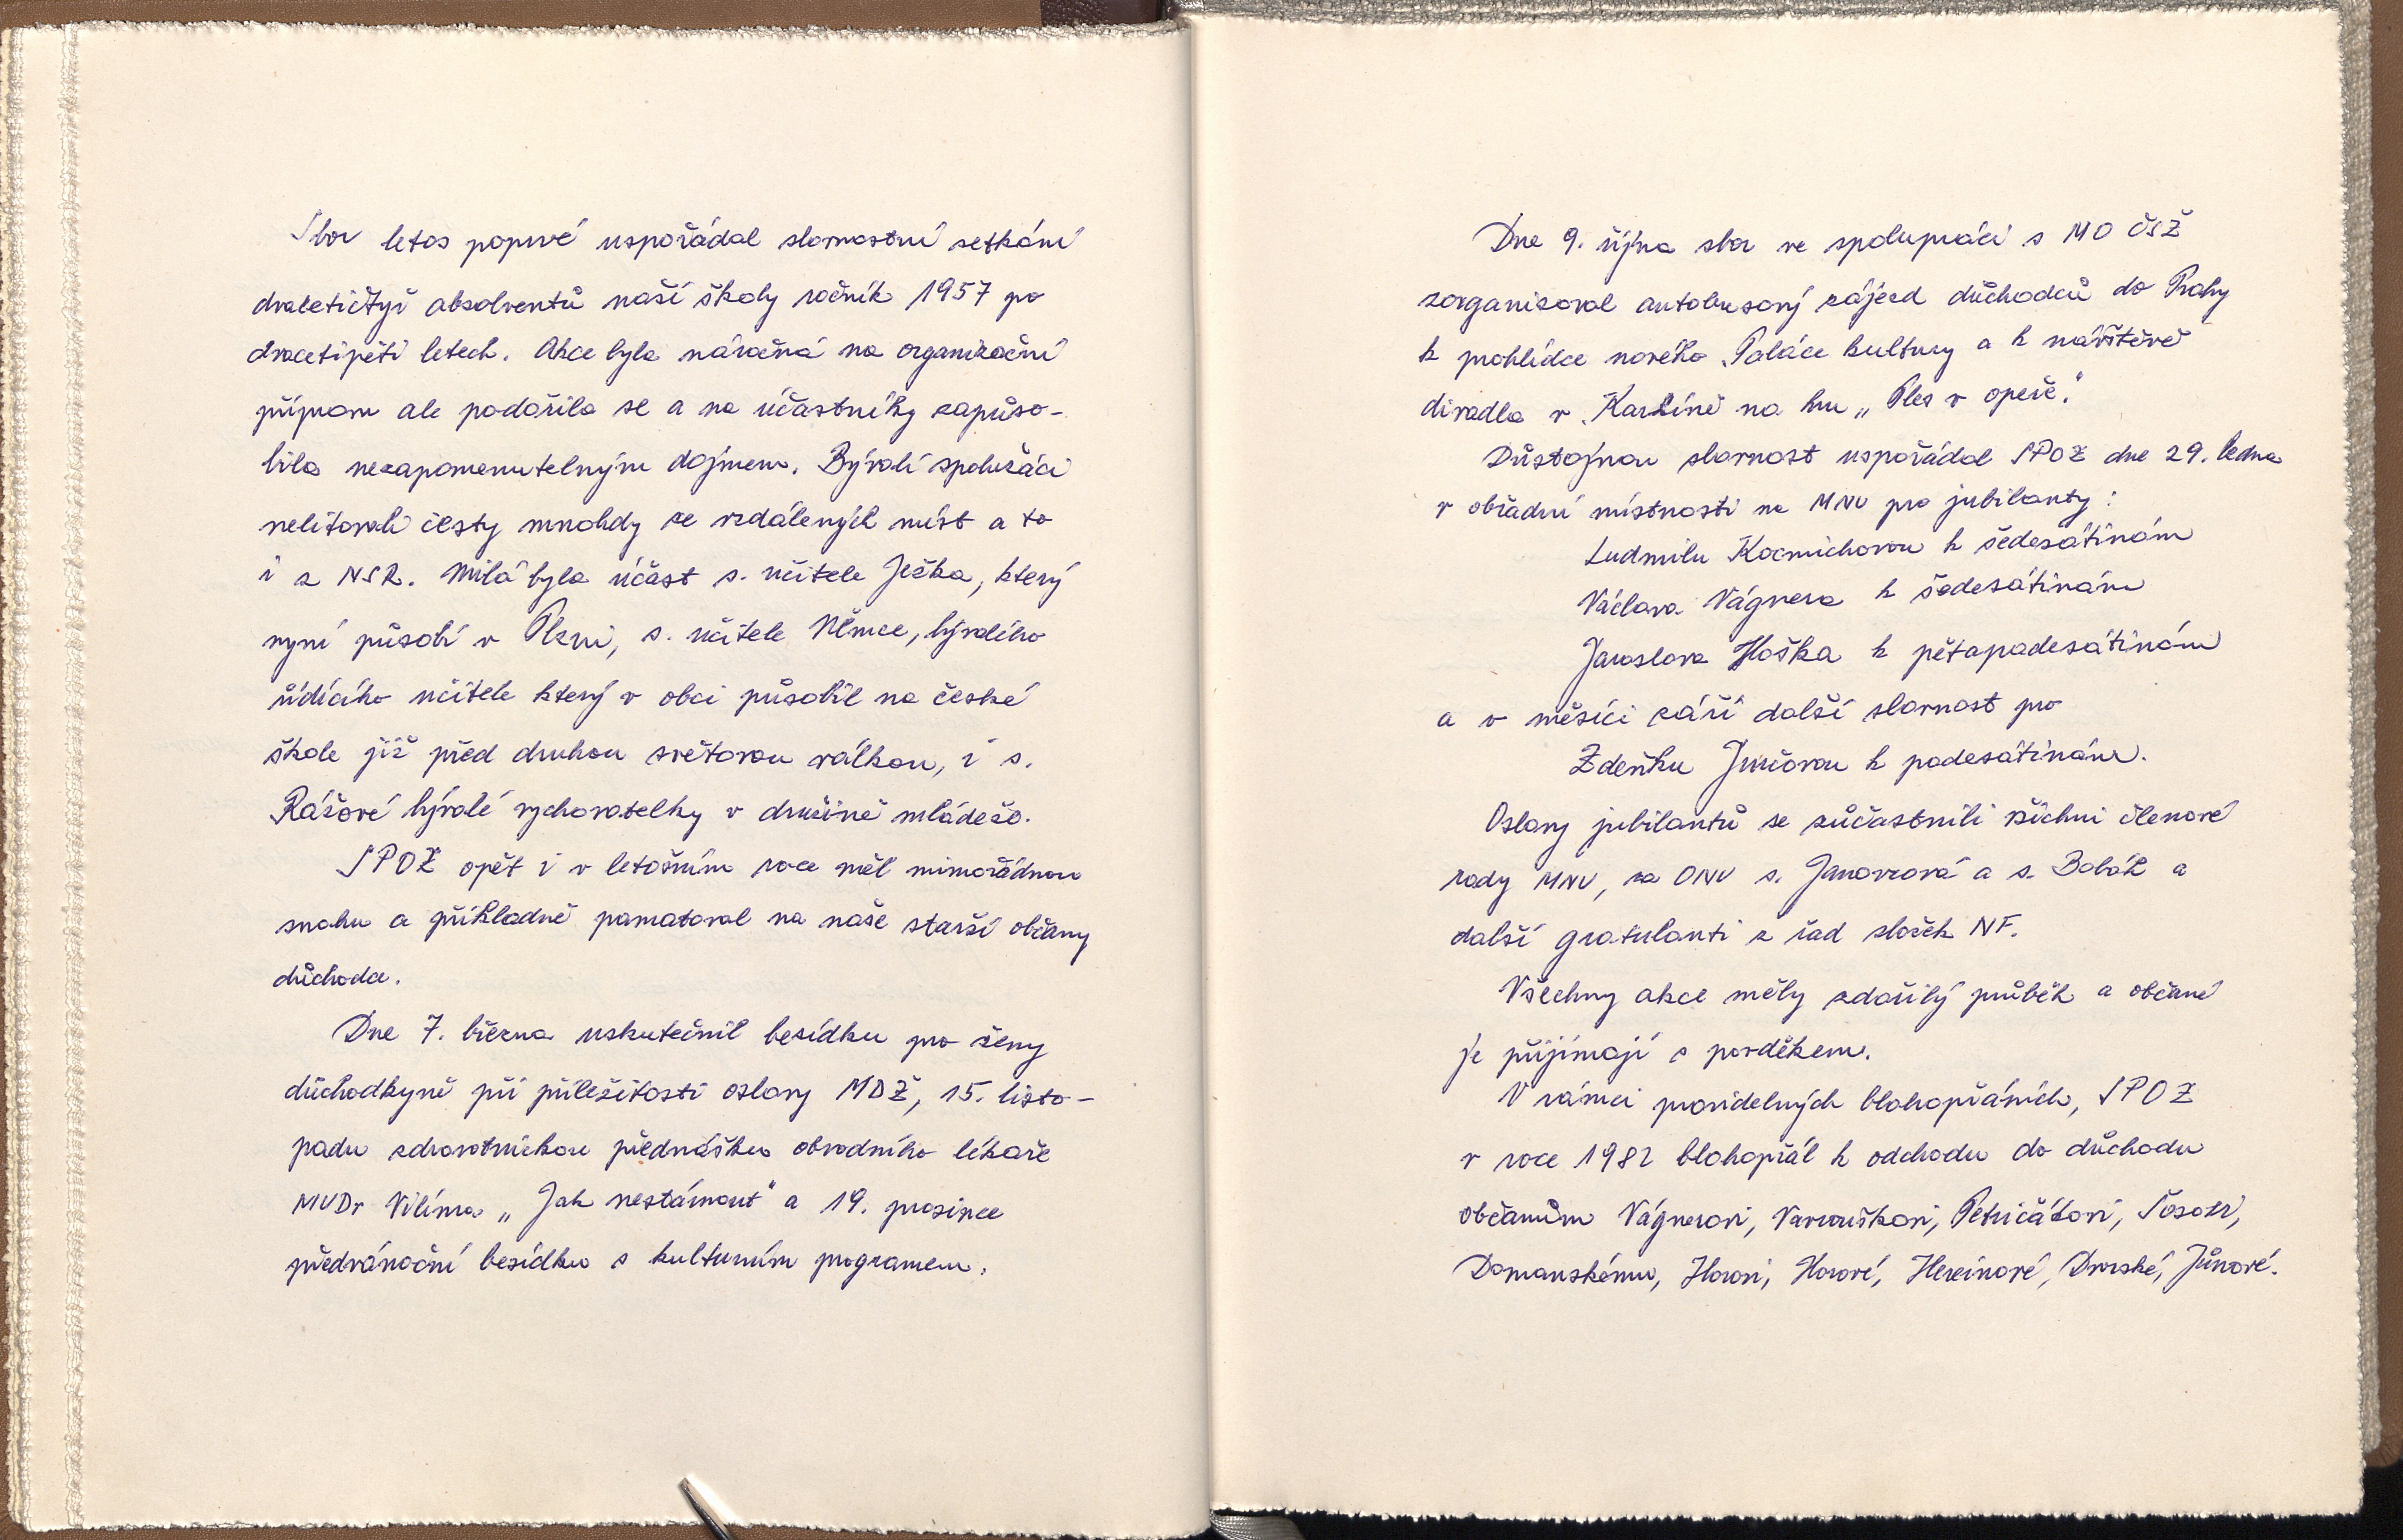 Sbor letos poprvé uspořádal slavnostní setkání
dvacetičtyř absolventů naší školy ročník 1957 po
dvacetipěti letech. Akce byla náročná na organizační
přípravu ale podařila se a na účastníky zapůso-
bila nezapomenutelným dojmem. Bývalí spolužáci
nelitovali cesty mnohdy ze vzdálených míst a to
i z NSR. Milá byla účast s. učitele Ježka, který
nyní působí v Plzni, s. učitele Němce, bývalého
řídícího učitele který v obci působil na české
škole již před druhou světovou válkou, i s.
Rážové bývalé vychovatelky v družině mládeže.
SPOZ opět i v letošním roce měl mimořádnou
snahu a příkladně pamatoval na naše starší občany
důchodce.
Dne 7. března uskutečnil besídku pro ženy
důchodkyně při příležitosti oslavy MDŽ, 15. listo-
padu zdravotnickou přednášku obvodního lékaře
MUDr Vilíma „Jak nestárnout" a 19. prosince
předvánoční besídku s kulturním programem.
Dne 9. října sbor ve spolupráci s MO ČSŽ
zorganizoval autobusový zájezd důchodců do Prahy
k prohlídce nového Paláce kultury a k návštěvě
divadla v Karlíně na hru „Ples v opeře."
Důstojnou slavnost uspořádal SPOZ dne 29. ledna
v obřadní místnosti na MNV pro jubilanty:
Ludmilu Kocmichovou k šedesátinám
Václava Vágnera k šedesátinám
Jaroslava Hoška k pětapadesátinám
a v měsíci září další slavnost pro
Zdeňku Jurčovou k padesátinám.
Oslavy jubilantů se zúčastnili všichni členové
rady MNV, za ONV s. Janovcová a s. Bobák a
další gratulanti z řad složek NF.
Všechny akce měly zdařilý průběh a občané
je přijímají s povděkem.
V rámci pravidelných blahopřáních, SPOZ
v roce 1982 blahopřál k odchodu do důchodu
občanům Vágnerovi, Vavrouškovi, Petričákovi,
Domanskému, Horovi, Horové, Hercinové, Dvorské, Jůnové.